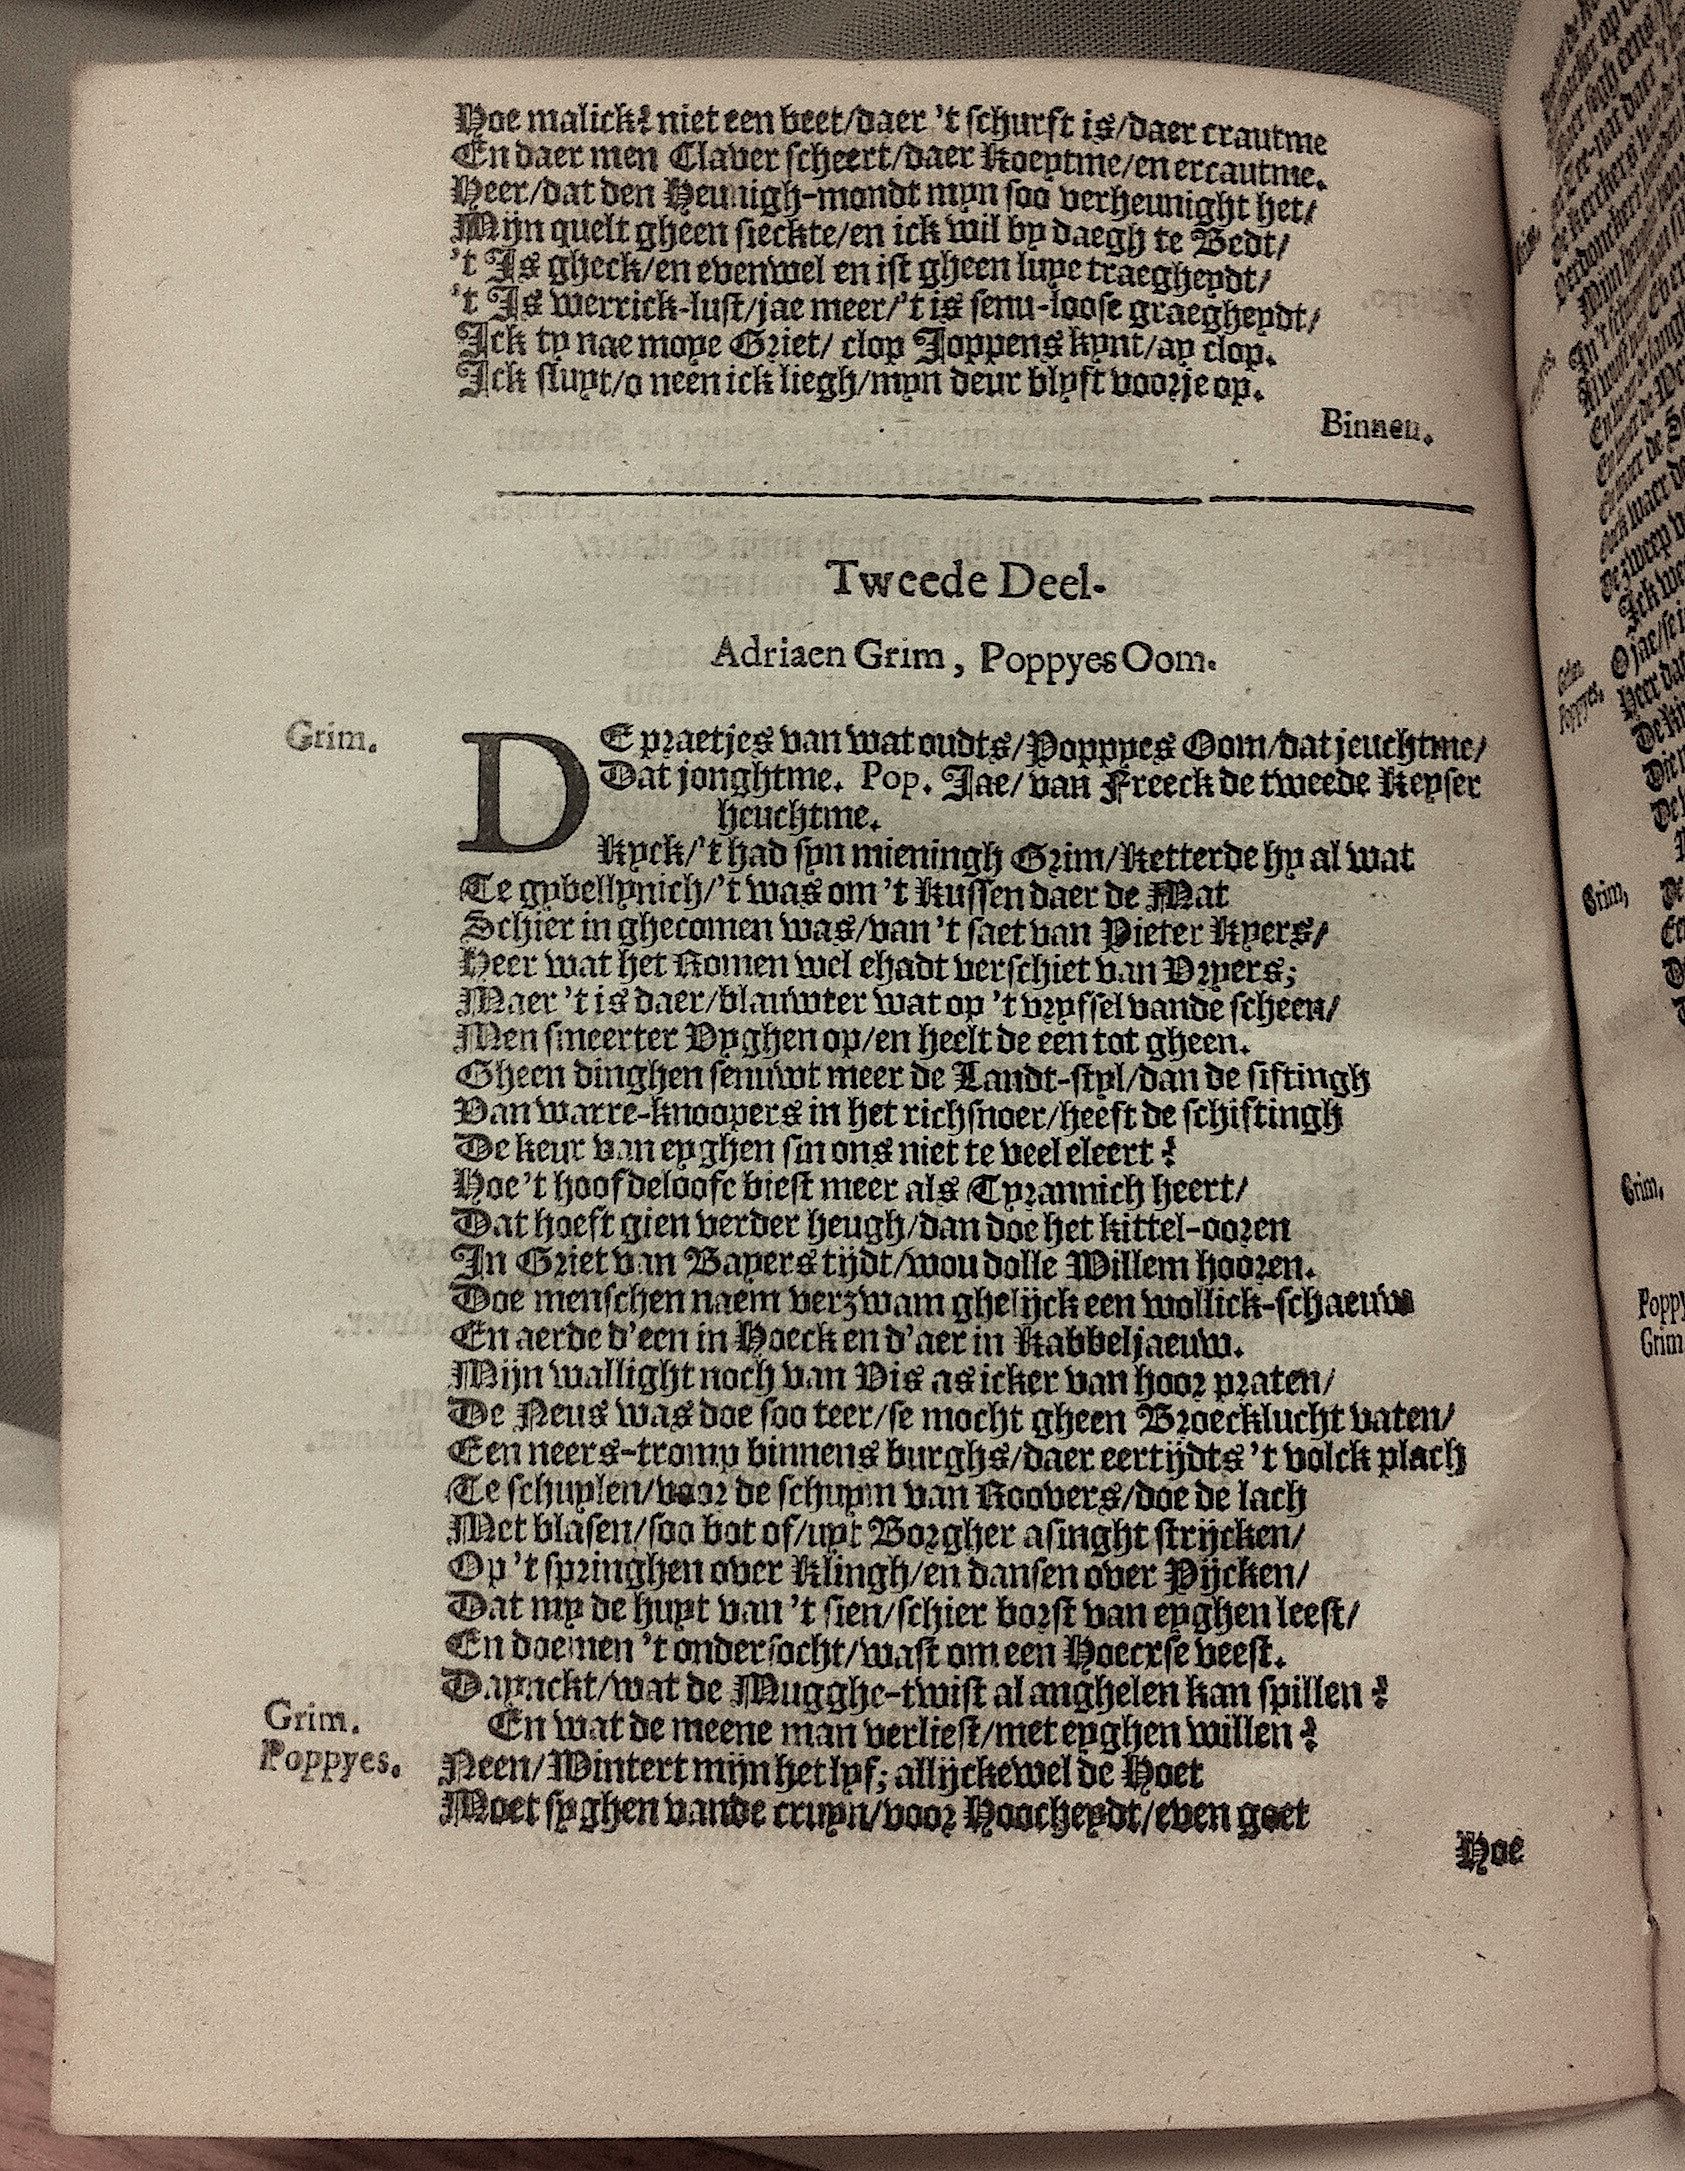 Hoe malick? niet een beet/daer 't schurft is/daer crautme
En daer men Claver scheert/daer Koeytme/en ercautme.
Heer/dat den Heunigh-mondt myn soo verheunight het/
Mijn quelt gheen sieckte/en ick wil by daegh te Bedt/
't Is gheck/en evenwel en ist gheen luye traegheydt/
't Is werrick-lust/jae meer/'t is senu-loose graegheydt/
Ick ty nae moye Griet/ clop Joppens kynt/ay clop.
Ick sluyt/o neen ick liegh/myn deur blyft voor je op.
Binnen.
Tweede Deel.
Adriaen Grim, Poppyes Oom.
Grim. DE praetjes van wat oudts/Poppyes Oom/dat jeuchtme/
Dat jonghtme. Pop. Jae/ van Freeck de tweede Keyser
heuchtme.
Kyck/'t had syn mieningh Grim/Ketterde hy al wat
Te gybellynich/'t was om 't Kussen daer de Mat
Schier in ghecomen was/van 't saet van Pieter Kyers/
Heer wat het Romen wel ehadt verschiet van Vryers;
Maer 't is daer/blauwter wat op 't vryssel vande scheen/
Men smeerter Vyghen op/en heelt de een tot gheen.
Gheen dinghen senuwt meer de Landt-styl/dan de siftingh
Van warre-knoopers in het richsnoer/heeft de schiftingh
De keur van eyghen sin ons niet te veel eleert?
Hoe 't hoofdeloose biest meer als Tyrannich heert/
Dat hoeft gien verder heugh/dan doe het kittel-ooren
In Griet van Bayers tijdt/wou dolle Willem hooren.
Doe menschen naem verzwam ghelijck een wollick-schaeuw
En aerde d'een in Hoeck en d'aer in Kabbeljaeuw.
Mijn wallight noch van Vis as icker van hoor praten/
De Neus was doe soo teer/se mocht gheen Broecklucht vaten/
Een neers-tromp binnens burghs/daer eertijdts 't volck plach
Te schuylen/voor de schuym van Roovers/doe de lach
Met blasen/soo bot of/uyt Borgher asinght strijcken/
Op 't springhen over Klingh/en dansen over Pijcken/
Dat my de huyt van 't sien/schier borst van eyghen leest/
En doemen 't ondersocht/wast om een Hoecxse veest.
Daynckt/wat de Mugghe-twist al anghelen kan spillen?
Grim. En wat de meene man verliest/met eyghen willen?
Poppyes. Neen/Wintert mijn het lyf; allijckewel de Hoet
Moet syghen vande cruyn/voor Hoocheydt/even goet
Hoe